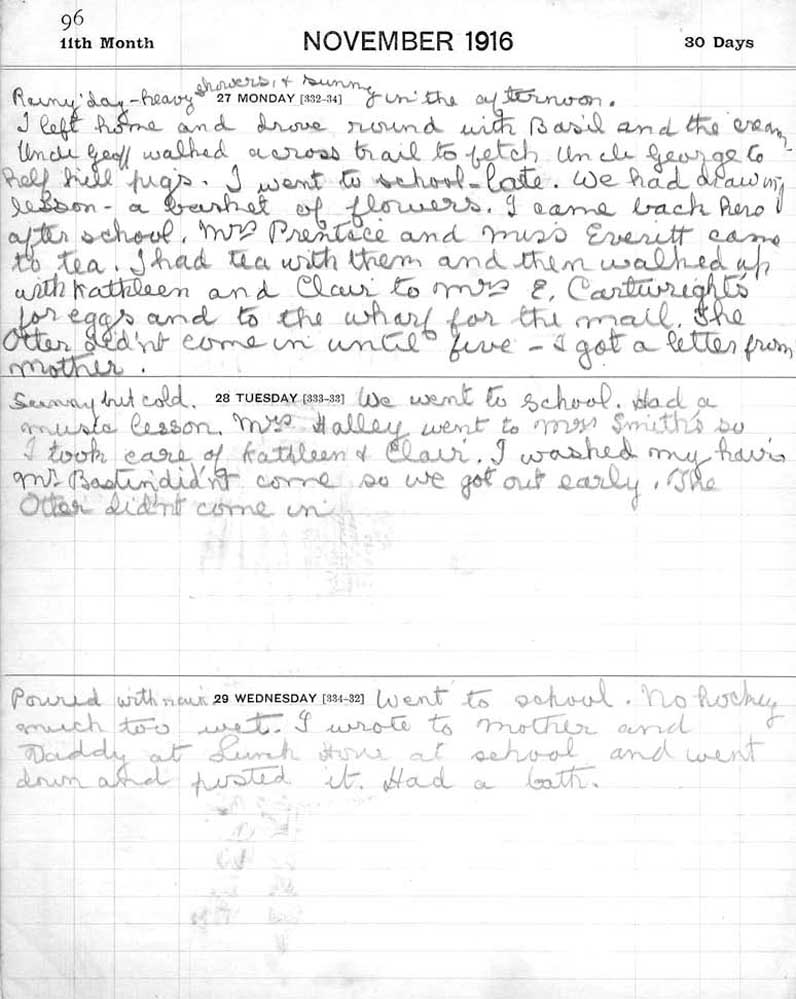 96
11th Month NOVEMBER 1916 30 Days
showers, & sunny
Rainy day - heavy 27 MONDAY [332-34] in the afternoon.
I left home and drove round with Basil and the cream
Uncle Geoff walked across trail to fetch Uncle George to
help kill pigs. I went to school - late. We had drawing
lesson - a basket of flowers. I came back here
after school. Mrs Prentice and Miss Everitt came
to tea. I had tea with them and then walked up
with Kathleen and Clair to Mrs E. Cartwright's
for eggs and to the wharf for the mail. The
Otter did'nt come in until five - I got a letter from
mother.
Sunny but cold. 28 TUESDAY [333-33] We went to school. Had a
music lesson. Mrs Halley went to Mrs Smith's so
I took care of Kathleen & Clair. I washed my hair
Mr Bastin did'nt come so we got out early. The
Otter did'nt come in
Poured with rain 29 WEDNESDAY [334-32] Went to school. No hockey
much too wet. I wrote to Mother and
Daddy at Lunch Hour at school and went
down and posted it. Had a bath.